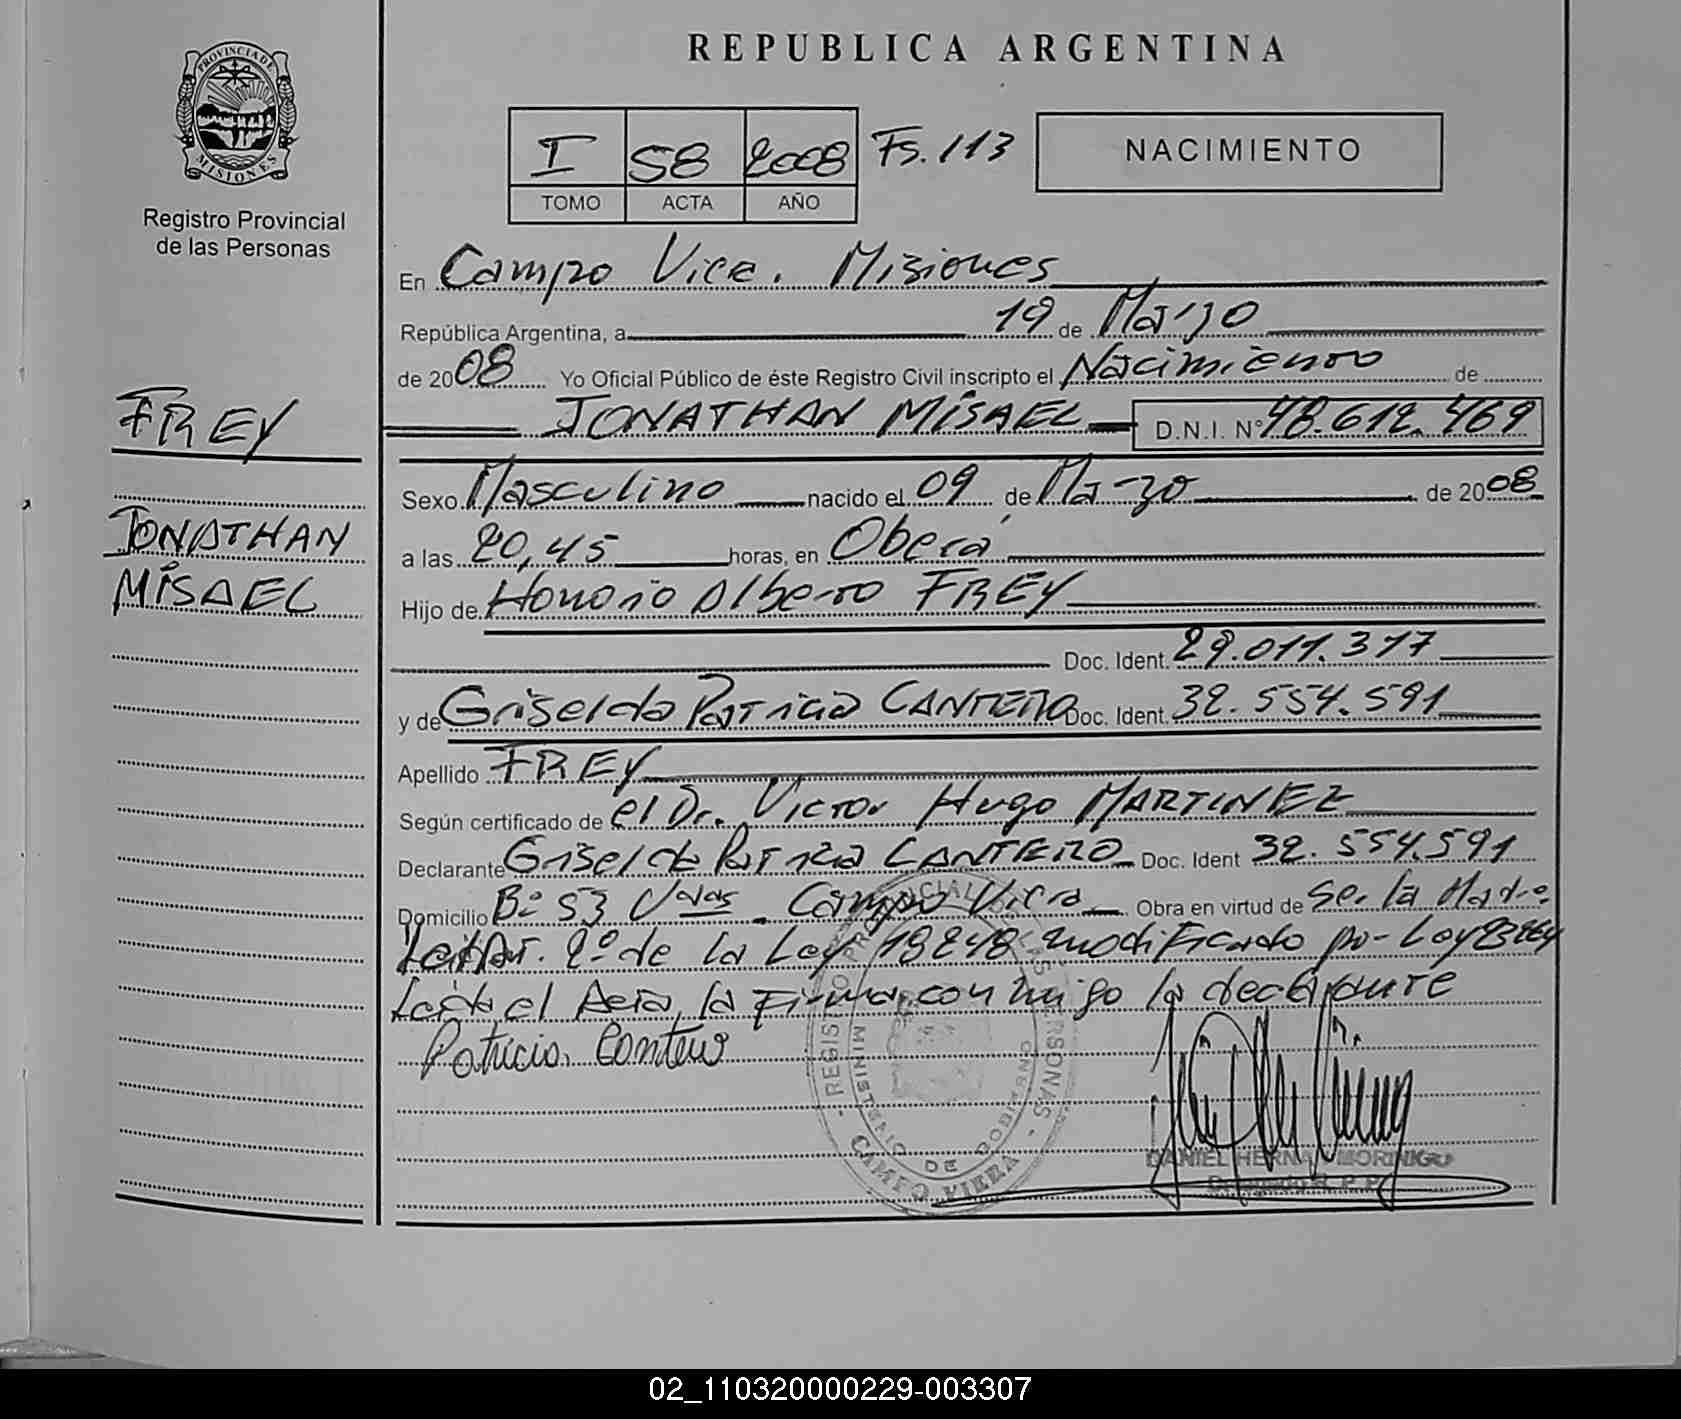 REPUBLICA ARGENTINA
PROVINCIA DE MISIONES
Registro Provincial
de las Personas
I 58 2008 Fs. 113
TOMO ACTA AÑO
NACIMIENTO
En Campo Viera. Misiones
República Argentina, a 19 de Marzo
de 2008 Yo Oficial Público de éste Registro Civil inscripto el Nacimiento de
JONATHAN MISAEL D.N.I. N° 48.612.469
FREY
JONATHAN
MISAEL
Sexo Masculino nacido el 09 de Marzo de 2008
a las 20,45 horas, en Oberá
Hijo de Honorio Alberto FREY
Doc. Ident. 29.011.317
y de Griselda Patricia CANTERO Doc. Ident. 32.554.591
Apellido FREY
Según certificado de el Dr. Victor Hugo MARTINEZ
Declarante Griselda Patricia CANTERO Doc. Ident 32.554.591
Domicilio B° 53 Vdas Campo Viera Obra en virtud de Se. la Madre
Art. 2° de la Ley 18248 modificado por Ley 23264
Leída el Acta, la Firma, conmigo la declarante
Patricia Cantero
REGISTRO PROVINCIAL DE LAS PERSONAS
MINISTERIO DE GOBIERNO
CAMPO VIERA
DANIEL HERNAN MORINIGO
Delegado R. P. P.
02_110320000229-003307